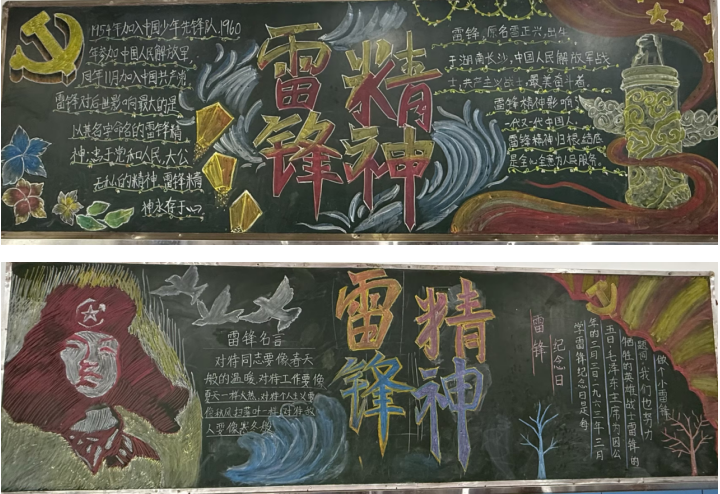 1954年加入中国少年先锋队,1960
年参加中国人民解放军,
同年11月加入中国共产党
雷锋对后世影响最大的是
以其名字命名的雷锋精
神,忠于党和人民、大公
无私的精神,雷锋精
神永存于心
雷锋
精神
雷锋,原名雷正兴,出生
于湖南长沙,中国人民解放军战
士,共产主义战士,最美奋斗者
雷锋精神影响了
一代又一代中国人,
雷锋精神归根结底
是全心全意为人民服务。
雷锋名言
对待同志要像春天
般的温暖,对待工作要像
夏天一样火热,对待个人主义要
像秋风扫落叶一样,对待敌
人要像寒冬般
雷锋
精神
做个小雷锋
题词,我们也努力
牺牲的英雄战士雷锋的
五日,毛泽东主席为因公
年的三月三日一九六三年三月
学雷锋纪念日是每
纪念日
雷锋